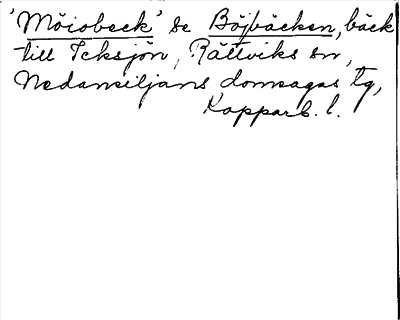 'Möiobeck' se Böjbäcken, bäck
till Icksjön, Rättviks sn,
Nedansiljans domsagas tg,
Kopparb. l.